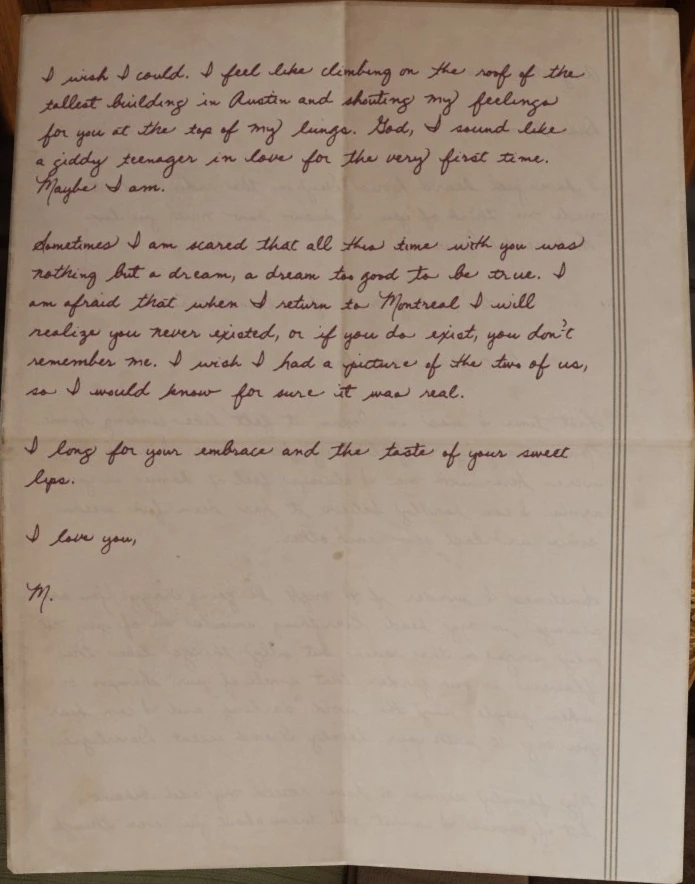 I wish I could. I feel like climbing on the roof of the
tallest building in Austin and shouting my feelings
for you at the top of my lungs. God, I sound like
a giddy teenager in love for the very first time.
Maybe I am.
Sometimes I am scared that all this time with you was
nothing but a dream, a dream too good to be true. I
am afraid that when I return to Montreal I will
realize you never existed, or if you do exist, you don't
remember me. I wish I had a picture of the two of us,
so I would know for sure it was real.
I long for your embrace and the taste of your sweet
lips.
I love you,
M.